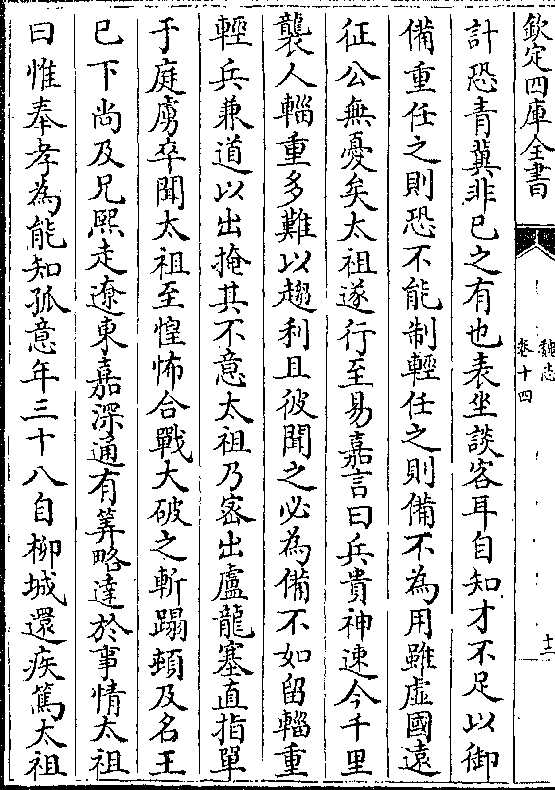 欽定四庫全書
魏志
卷十四
十二
計恐青冀非己之有也表坐談客耳自知才不足以御
備重任之則恐不能制輕任之則備不為用雖虛國遠
征公無憂矣太祖遂行至易嘉言曰兵貴神速今千里
襲人輜重多難以趨利且彼聞之必為備不如留輜重
輕兵兼道以出掩其不意太祖乃宻出盧龍塞直指單
于庭虜卒聞太祖至惶怖合戰大破之斬蹋頓及名王
已下尚及兄熙走遼東嘉深通有筭略達於事情太祖
曰惟奉孝為能知孤意年三十八自柳城還疾篤太祖